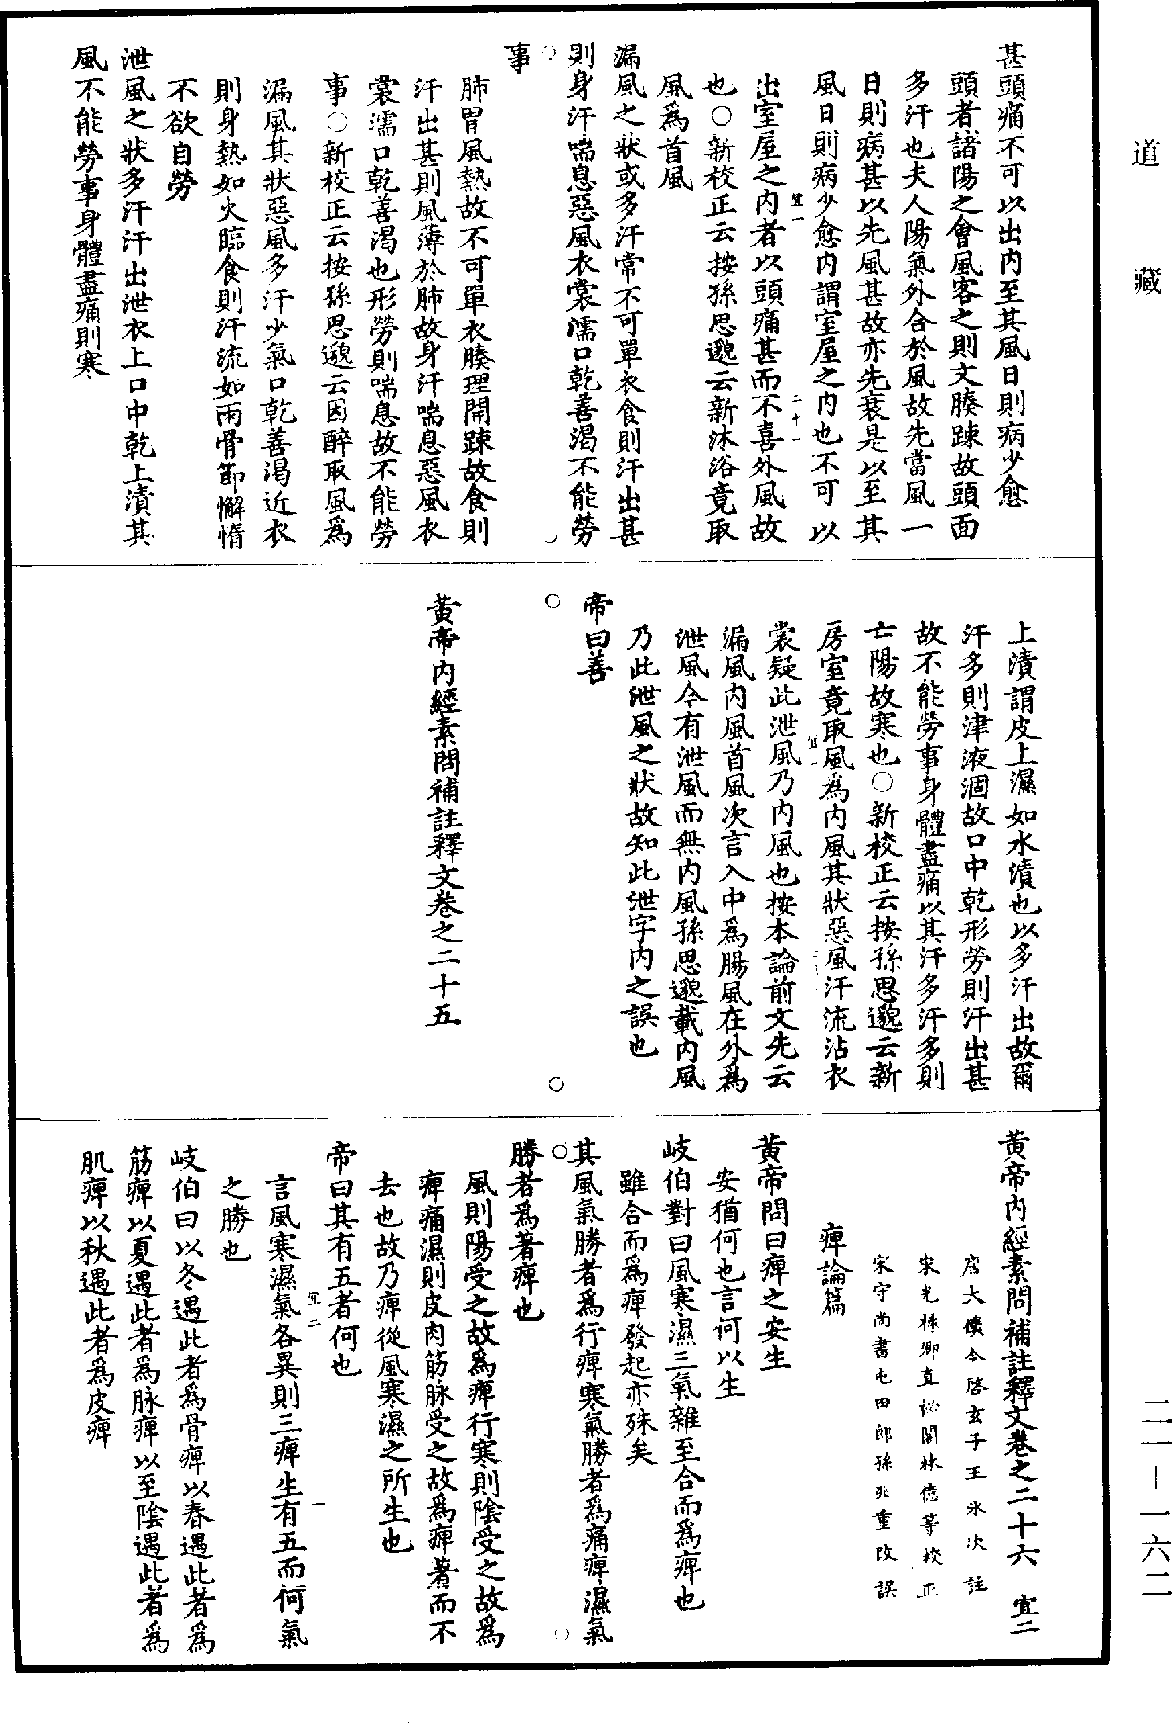 道藏
甚頭痛不可以出內至其風日則病少愈
頭者諸陽之會風客之則文腠踈故頭面
多汗也夫人陽氣外合於風故先當風一
日則病甚以先風甚故亦先衰是以至其
風日則病少愈內謂室屋之內也不可以
出室屋之內者以頭痛甚而不喜外風故
也○新校正云按孫思邈云新沐浴竟取
風爲首風
漏風之狀或多汗常不可單衣食則汗出甚
則身汗喘息惡風衣裳濡口乾善渴不能勞
事
肺胃風熱故不可單衣腠理開踈故食則
汗出甚則風薄於肺故身汗喘息惡風衣
裳濡口乾善渴也形勞則喘息故不能勞
事○新校正云按孫思邈云因醉取風爲
漏風其狀惡風多汗少氣口乾善渴近衣
則身熱如火臨食則汗流如雨骨節懈惰
不欲自勞
泄風之狀多汗汗出泄衣上口中乾上漬其
風不能勞事身體盡痛則寒
上漬謂皮上濕如水漬也以多汗出故爾
汗多則津液涸故口中乾形勞則汗出甚
故不能勞事身體盡痛以其汗多汗多則
亡陽故寒也○新校正云按孫思邈云新
房室竟取風爲內風其狀惡風汗流沾衣
裳疑此泄風乃內風也按本論前文先云
漏風內風首風次言入中爲腸風在外爲
泄風今有泄風而無內風孫思邈載內風
乃此泄風之狀故知此泄字內之誤也
帝曰善
黃帝內經素問補註釋文卷之二十五
黃帝內經素問補註釋文卷之二十六 宜二
唐太僕令啓玄子王氷次註
宋光祿卿直祕閣林億等校正
宋守尚書屯田郎孫兆重改誤
痺論篇
黃帝問曰痺之安生
安猶何也言何以生
岐伯對曰風寒濕三氣雜至合而爲痺也
雖合而爲痺發起亦殊矣
其風氣勝者爲行痺寒氣勝者爲痛痺濕氣
勝者爲著痺也
風則陽受之故爲痺行寒則陰受之故爲
痺痛濕則皮肉筋脉受之故爲痺著而不
去也故乃痺從風寒濕之所生也
帝曰其有五者何也
言風寒濕氣各異則三痺生有五而何氣
之勝也
岐伯曰以冬遇此者爲骨痺以春遇此者爲
筋痺以夏遇此者爲脉痺以至陰遇此者爲
肌痺以秋遇此者爲皮痺
二一—一六二